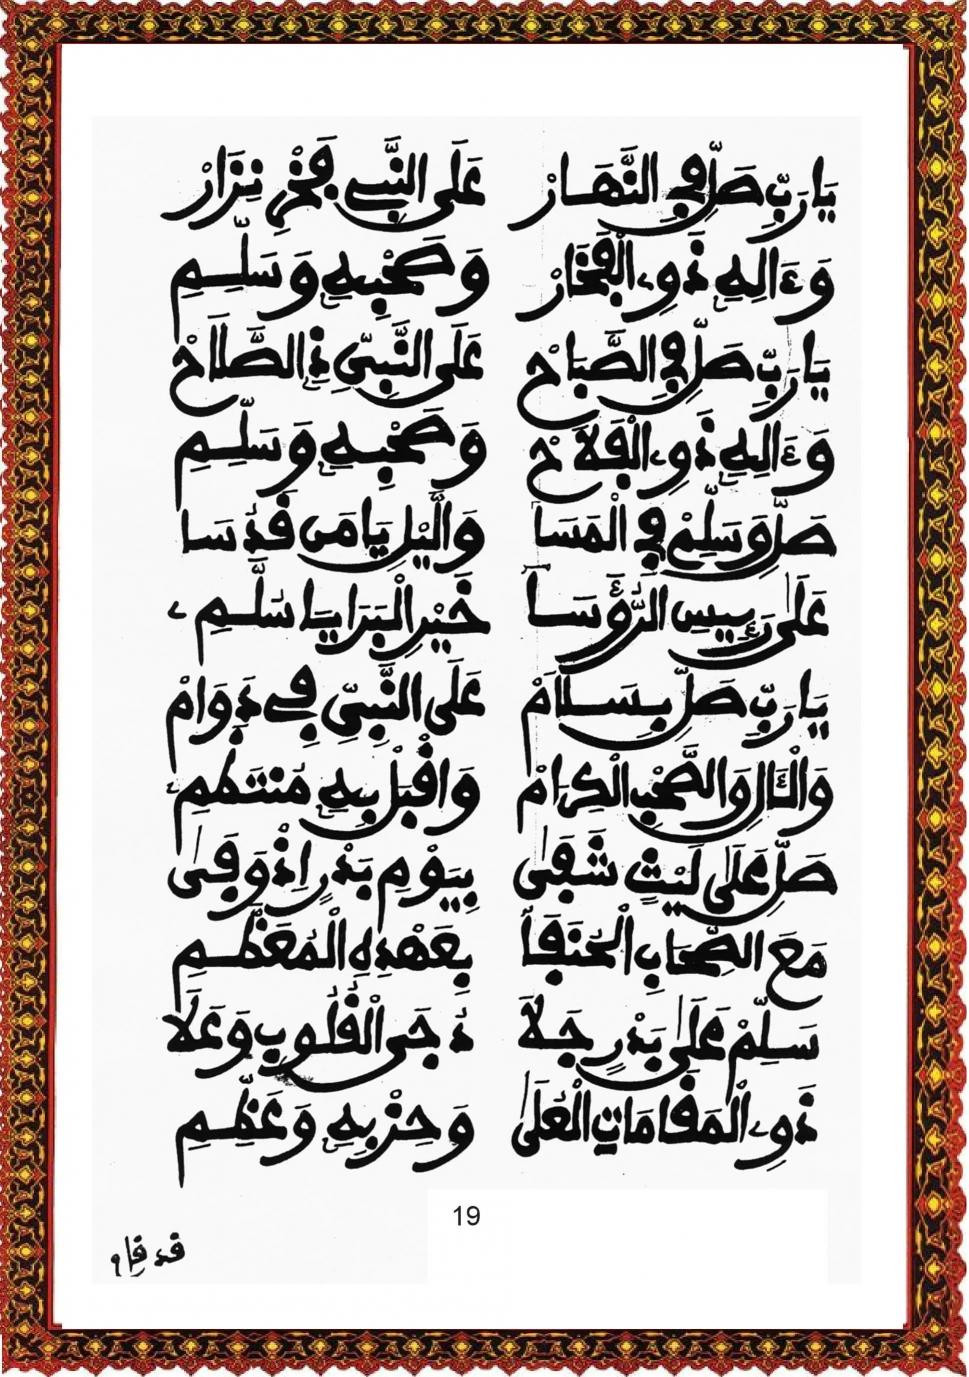 يَا رَبِّ صَلِّ فِي النَّهَارْ عَلَى النَّبِي فَخْرِ نِزَارْ
وَءَالِهِ ذَوِي الْفَخَارْ وَصَحْبِهِ وَسَلِّمِ
يَا رَبِّ صَلِّ فِي الصَّبَاحْ عَلَى النَّبِيِّ ذِي الصَّلَاحْ
وَءَالِهِ ذَوِي الْفَلَاحْ وَصَحْبِهِ وَسَلِّمِ
صَلِّ وَسَلِّمْ فِي الْمَسَا وَالَّيْلِ يَا مَنْ قَدُسَا
عَلَى رَئِيسِ الرُّؤَسَا خَيْرِ الْبَرَايَا سَلِّمِ
يَا رَبِّ صَلِّ بِسَلَامْ عَلَى النَّبِيِّ فِي دَوَامْ
وَالْآلِ وَالصَّحْبِ الْكِرَامْ وَاقْبَلْ بِهِ مُنتَظَمِي
صَلِّ عَلَى لَيْثٍ شَفَى بِيَوْمِ بَدْرٍ إِذْ وَفَى
مَعَ الصِّحَابِ الْحُنَفَا بِعَهْدِهِ الْمُعَظَّمِ
سَلِّمْ عَلَى بَدْرٍ جَلَا دُجَى الْقُلُوبِ وَعَلَا
ذَوِي الْمَقَامَاتِ الْعُلَى وَحِزْبِهِ وَعَظِّمِ
19